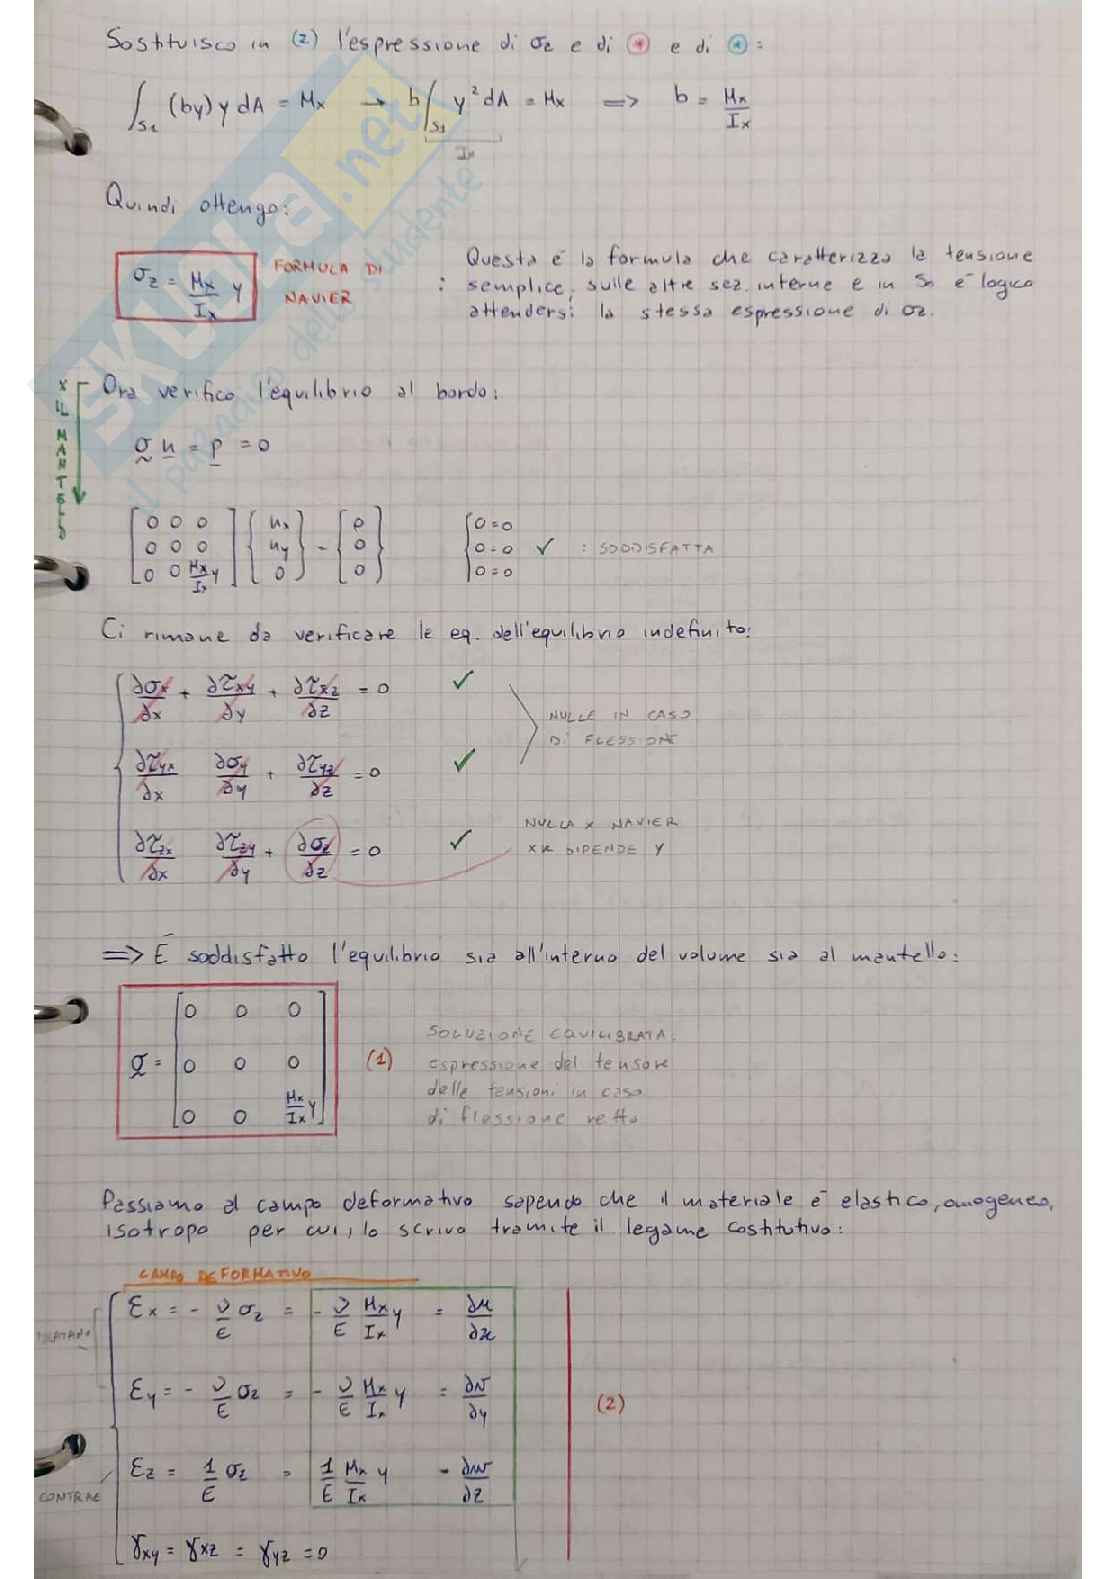 Sostituisco in (2) l'espressione di σz e di ⊛ e di ⊛ :
∫S1 (by) y dA = Mx → b ∫S1 y² dA = Mx => b = Mx/Ix
Ix
Quindi ottengo:
σz = Mx/Ix y
FORMULA DI NAVIER
: Questa è la formula che caratterizza la tensione
semplice, sulle altre sez. interne e in Sn è logico
attendersi la stessa espressione di σz.
x IL MANTELLO
Ora verifico l'equilibrio al bordo:
σ n = p = 0
[0 0 0; 0 0 0; 0 0 Mx/Ix y] {nx; ny; 0} = {0; 0; 0}
{0=0; 0=0; 0=0 ✓ : SODDISFATTA
Ci rimane da verificare le eq. dell'equilibrio indefinito:
∂σx/∂x + ∂τxy/∂y + ∂τxz/∂z = 0 ✓
NULLE IN CASO
DI FLESSIONE
∂τyx/∂x ∂σy/∂y + ∂τyz/∂z = 0 ✓
NULLA x NAVIER
xK DIPENDE Y
∂τzx/∂x ∂τzy/∂y + ∂σz/∂z = 0 ✓
=> È soddisfatto l'equilibrio sia all'interno del volume sia al mantello:
σ = [0 0 0; 0 0 0; 0 0 Mx/Ix y] (1)
SOLUZIONE EQUILIBRATA:
espressione del tensore
delle tensioni in caso
di flessione retta
Passiamo al campo deformativo sapendo che il materiale è elastico, omogeneo,
isotropo per cui, lo scrivo tramite il legame costitutivo:
CAMPO DEFORMATIVO
εx = - ν/E σz = - ν/E Mx/Ix y = ∂u/∂x
εy = - ν/E σz = - ν/E Mx/Ix y = ∂v/∂y
(2)
εz = 1/E σz = 1/E Mx/Ix y = ∂w/∂z
CONTRAE
γxy = γxz = γyz = 0
SKUOLA.net
il paradiso dello studente